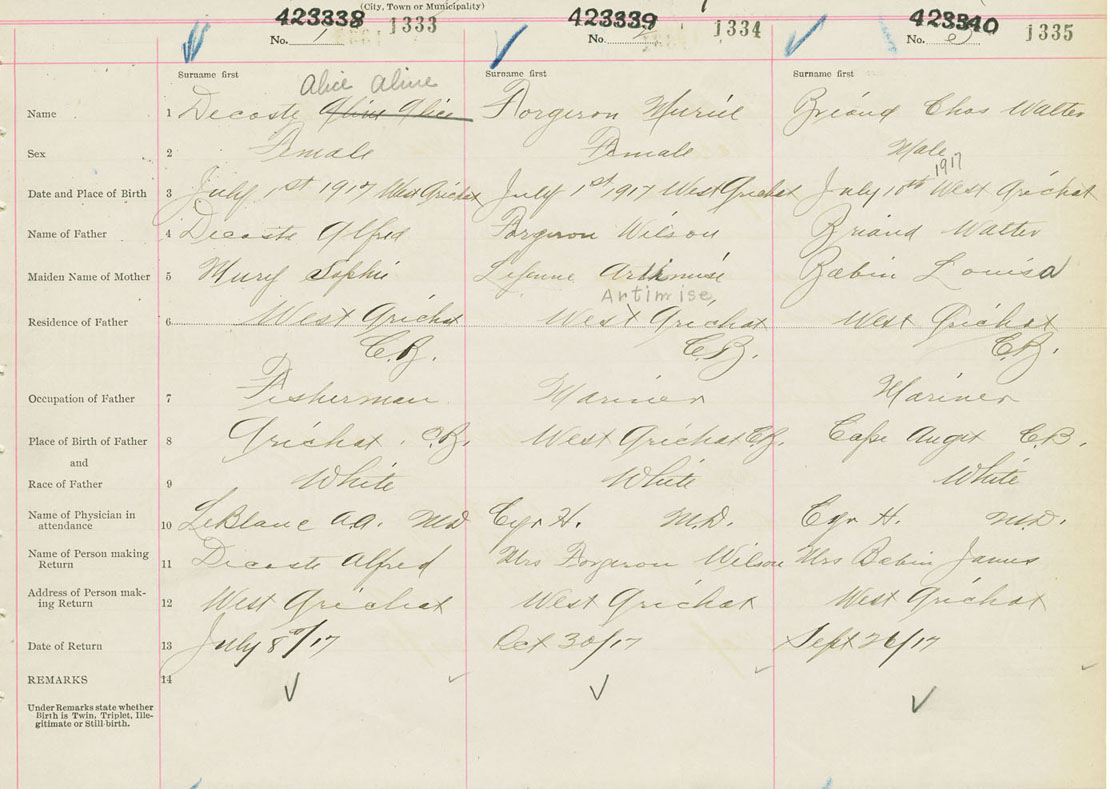 (City, Town or Municipality)
423338 1333 423339 1334 423340 1335
No. 1 No. 2 No. 3
Surname first Surname first Surname first
Alice Aline
Name 1 Decoste Aline Alice Forgeron Muriel Briand Chas Walter
Sex 2 Female Female Male
1917
Date and Place of Birth 3 July 1st 1917 West Arichat July 1st 1917 West Arichat July 18th West Arichat
Name of Father 4 Decoste Alfred Forgeron Wilson Briand Walter
Maiden Name of Mother 5 Mury Sophie Artimise Babin Louisa
Artimise
Residence of Father 6 West Arichat West Arichat West Arichat
C.B. C.B. C.B.
Occupation of Father 7 Fisherman Mariner Mariner
Place of Birth of Father 8 Arichat. C.B. West Arichat C.B. Cape Auget C.B.
and
Race of Father 9 White White White
Name of Physician in
attendance 10 LeBlanc A.A. M.D Cyr H. M.D. Cyr H. M.D.
Name of Person making
Return 11 Decoste Alfred Mrs Forgeron Wilson Mrs Babin James
Address of Person mak-
ing Return 12 West Arichat West Arichat West Arichat
Date of Return 13 July 8th/17 Oct 30/17 Sept 26/17
REMARKS 14
Under Remarks state whether
Birth is Twin, Triplet, Ille-
gitimate or Still-birth.